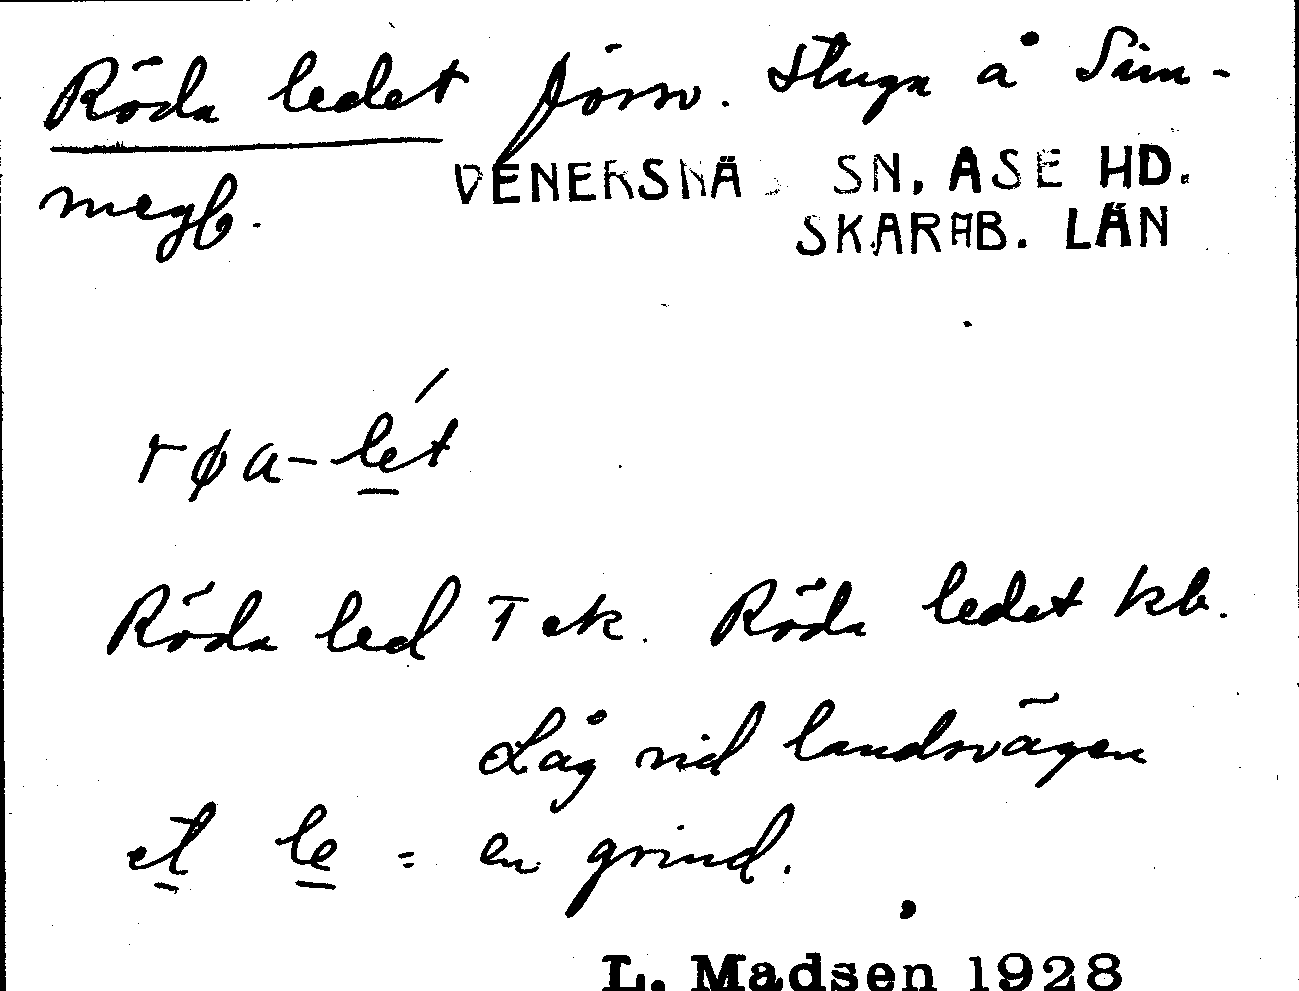 Röda ledet försv. stuga å Sim-
megb.
VENERSNÄS SN, ÅSE HD.
SKARAB. LÄN
røa-lét
Röda led T ek. Röda ledet kb.
Låg vid landsvägen
et le = en grind.
L. Madsen 1928